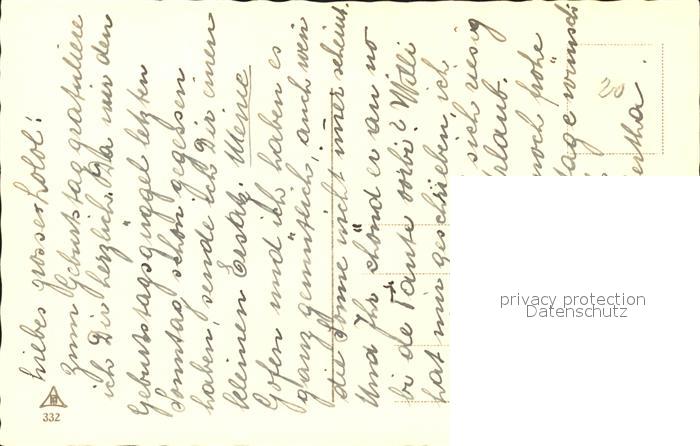 Liebes grosses Lolol!
Zum Geburtstag gratuliere
ich Dir herzlich. Da wir den
Geburtstagsgüggel letzten
Sonntag schon gegessen
haben, sende ich Dir einen
kleinen Ersatz. Meine
Gofen und ich haben es
ganz gemütlich, auch wen
die Sonne nicht imer scheint.
Und Ihr chönd er au no
bi de Tante vorbi? Willi
hat mir geschrieben, ich
sich riesig
Urlaub.
noch frohe
tage wünscht
Bertha.
20
332
privacy protection
Datenschutz